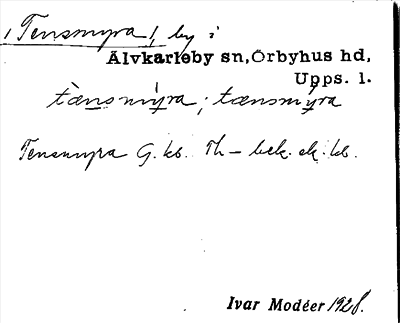 1 Tensmyra 1, by i
Älvkarleby sn, Örbyhus hd,
Upps. l.
tænsmy̌ra; tænsmy̌ra
Tensmyra G. kb. Th – bek. ek. kb.
Ivar Modéer 1928.